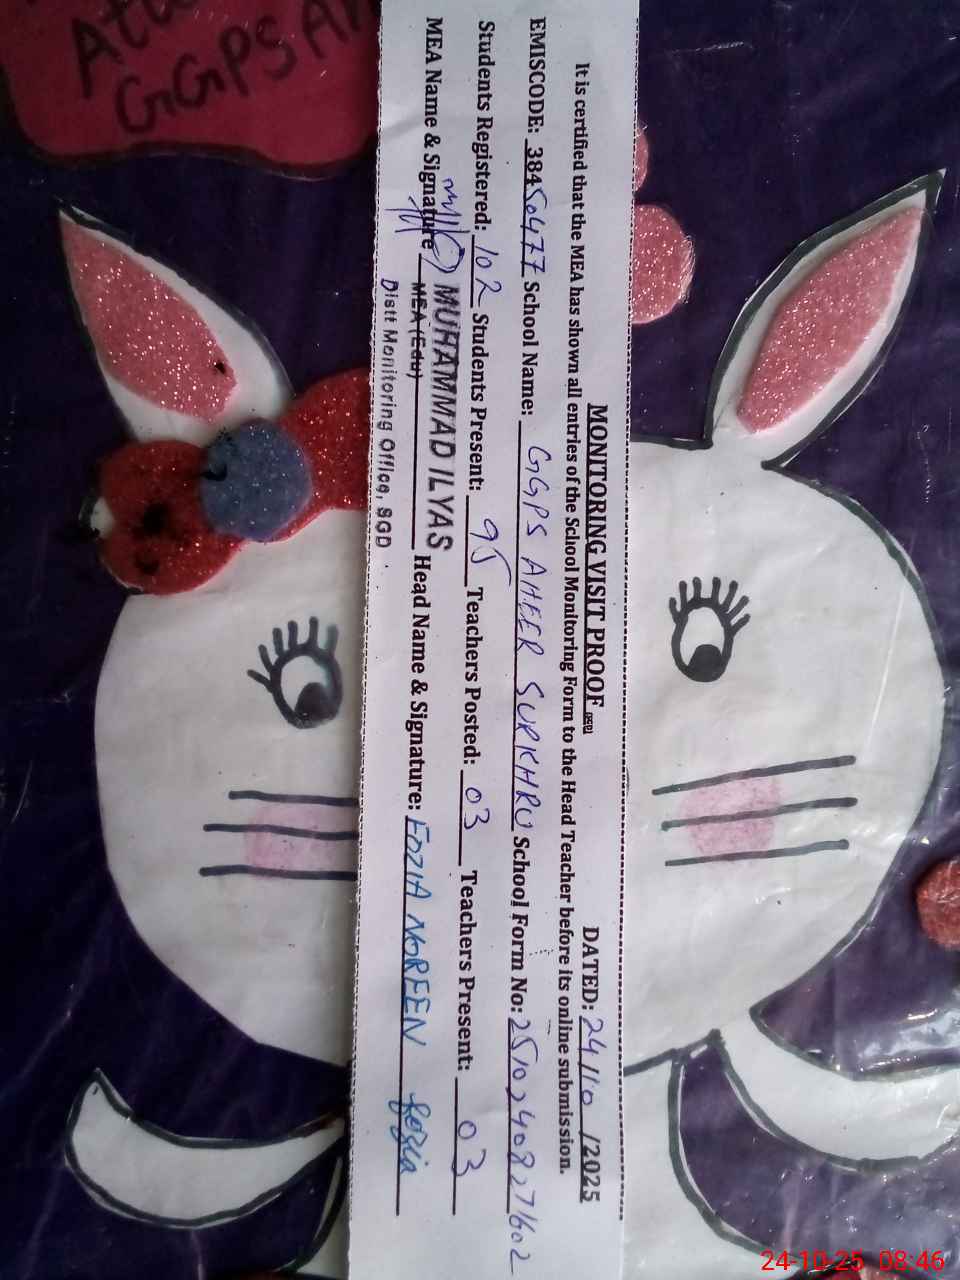 MONITORING VISIT PROOF
DATED: 24/10/2025
It is certified that the MEA has shown all entries of the School Monitoring Form to the Head Teacher before its online submission.
EMISCODE: 38450477 School Name: GGPS AHEER SURKHRU School Form No: 25102408271602
Students Registered: 102 Students Present: 95 Teachers Posted: 03 Teachers Present: 03
MEA Name & Signature MUHAMMAD ILYAS Head Name & Signature: FOZIA NOREEN fozia
MEA (Edu)
Distt Monitoring Office, SGD
GGPS
24-10-25 08:46